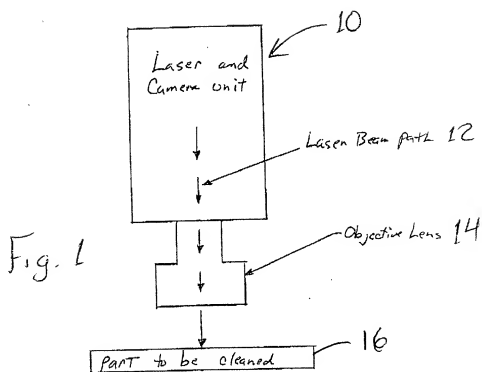 10
Laser and
Camera unit
Laser Beam path 12
Objective Lens 14
Fig. 1
16
Part to be cleaned